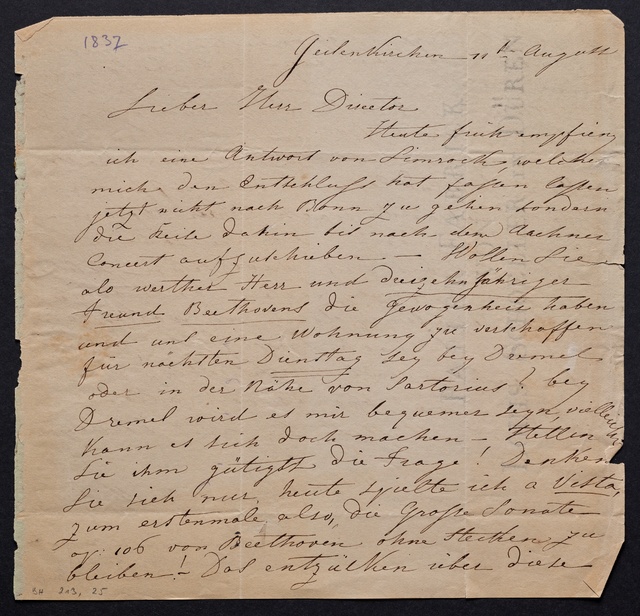 1837
Geilenkirchen 11t August
Lieber Herr Director
Heute früh empfieng
ich eine Antwort von Simrock, welche
mich den Entschluß hat faßen laßen
jetzt nicht nach Bonn zu gehen sondern
die Reise dahin bis nach dem Aachner
Concert aufzuschieben – Wollen Sie
als werther Herr und dreizehnjähriger
Freund Beethovens die Gewogenheit haben
und uns eine Wohnung zu verschaffen
für nächsten Dienstag sey bey Dremel
oder in der Nähe von Sartorius? bey
Dremel wird es mir bequemer seyn, vielleicht
kann es sich doch machen – Stellen
Sie ihm gütigst die Frage! Denken
Sie sich nur, heute spielte ich a Vista,
zum erstenmale also, die Große Sonate
op: 106 von Beethoven ohne Stecken zu
bleiben! – Das entzücken über diese
BH 203, 25